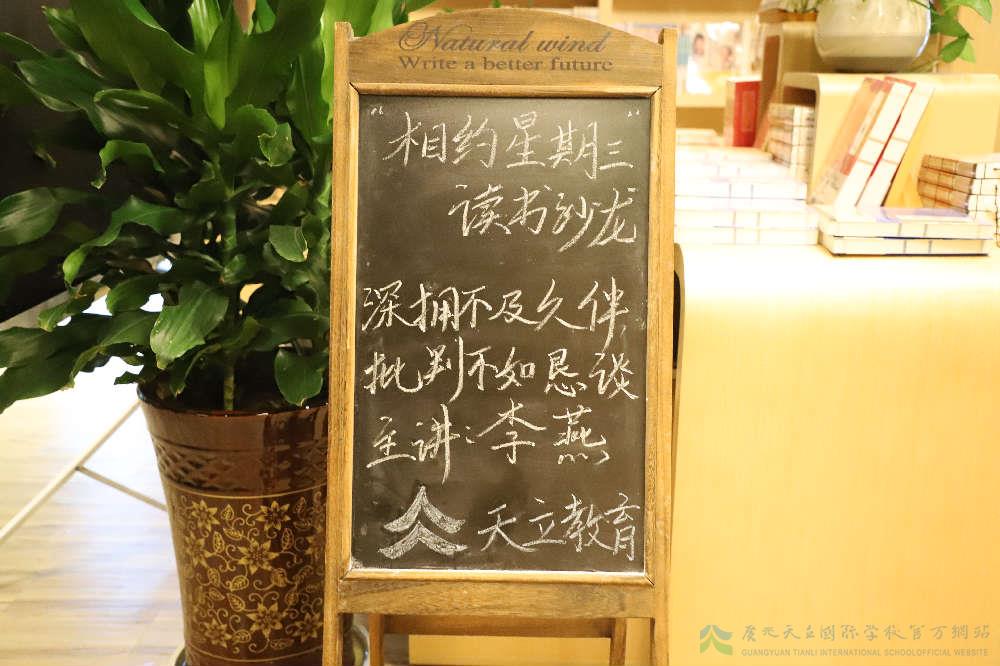 Natural wind
Write a better future
“相约星期三”
读书沙龙
深拥不及久伴
批判不如恳谈
主讲:李燕
天立教育
广元天立国际学校官方網站
GUANGYUAN TIANLI INTERNATIONAL SCHOOLOFFICIAL WEBSITE